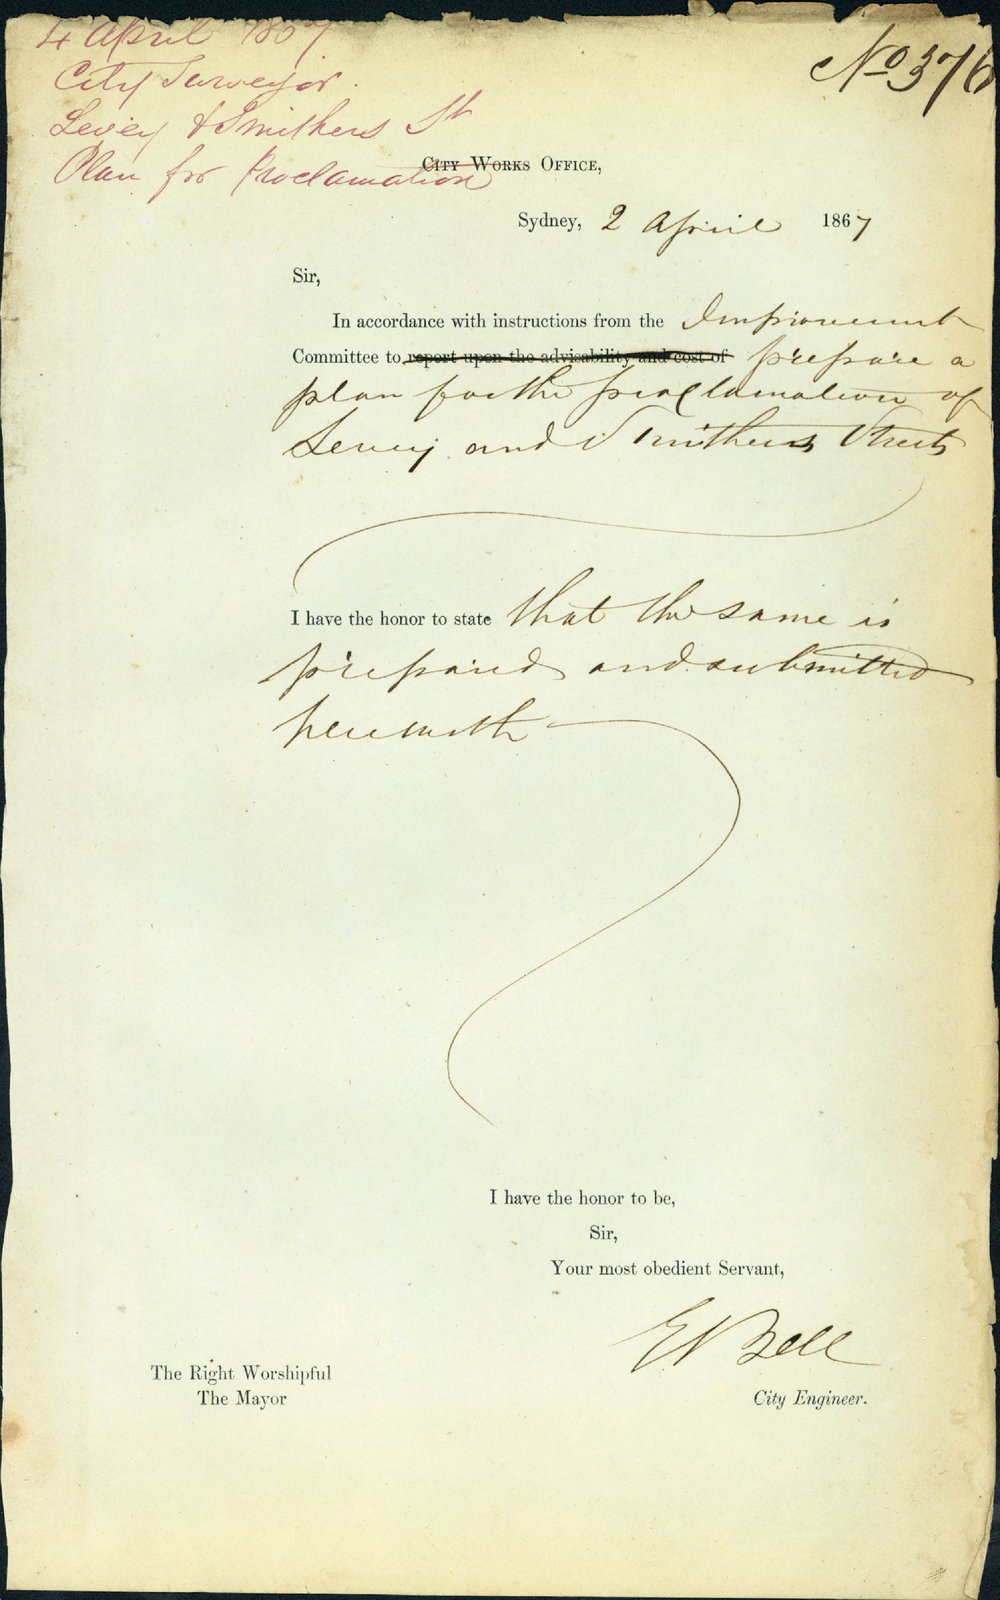 4 April 1867
City Surveyor.
Levey & Smithers St
Plan for Proclamation
No 376
City Works Office,
Sydney, 2 April 1867
Sir,
In accordance with instructions from the Improvement
Committee to report upon the advisability and cost of prepare a
plan for the proclamation of
Levey and Smithers Streets
I have the honor to state that the same is
prepared and submitted
herewith
I have the honor to be,
Sir,
Your most obedient Servant,
E Bell
City Engineer.
The Right Worshipful
The Mayor